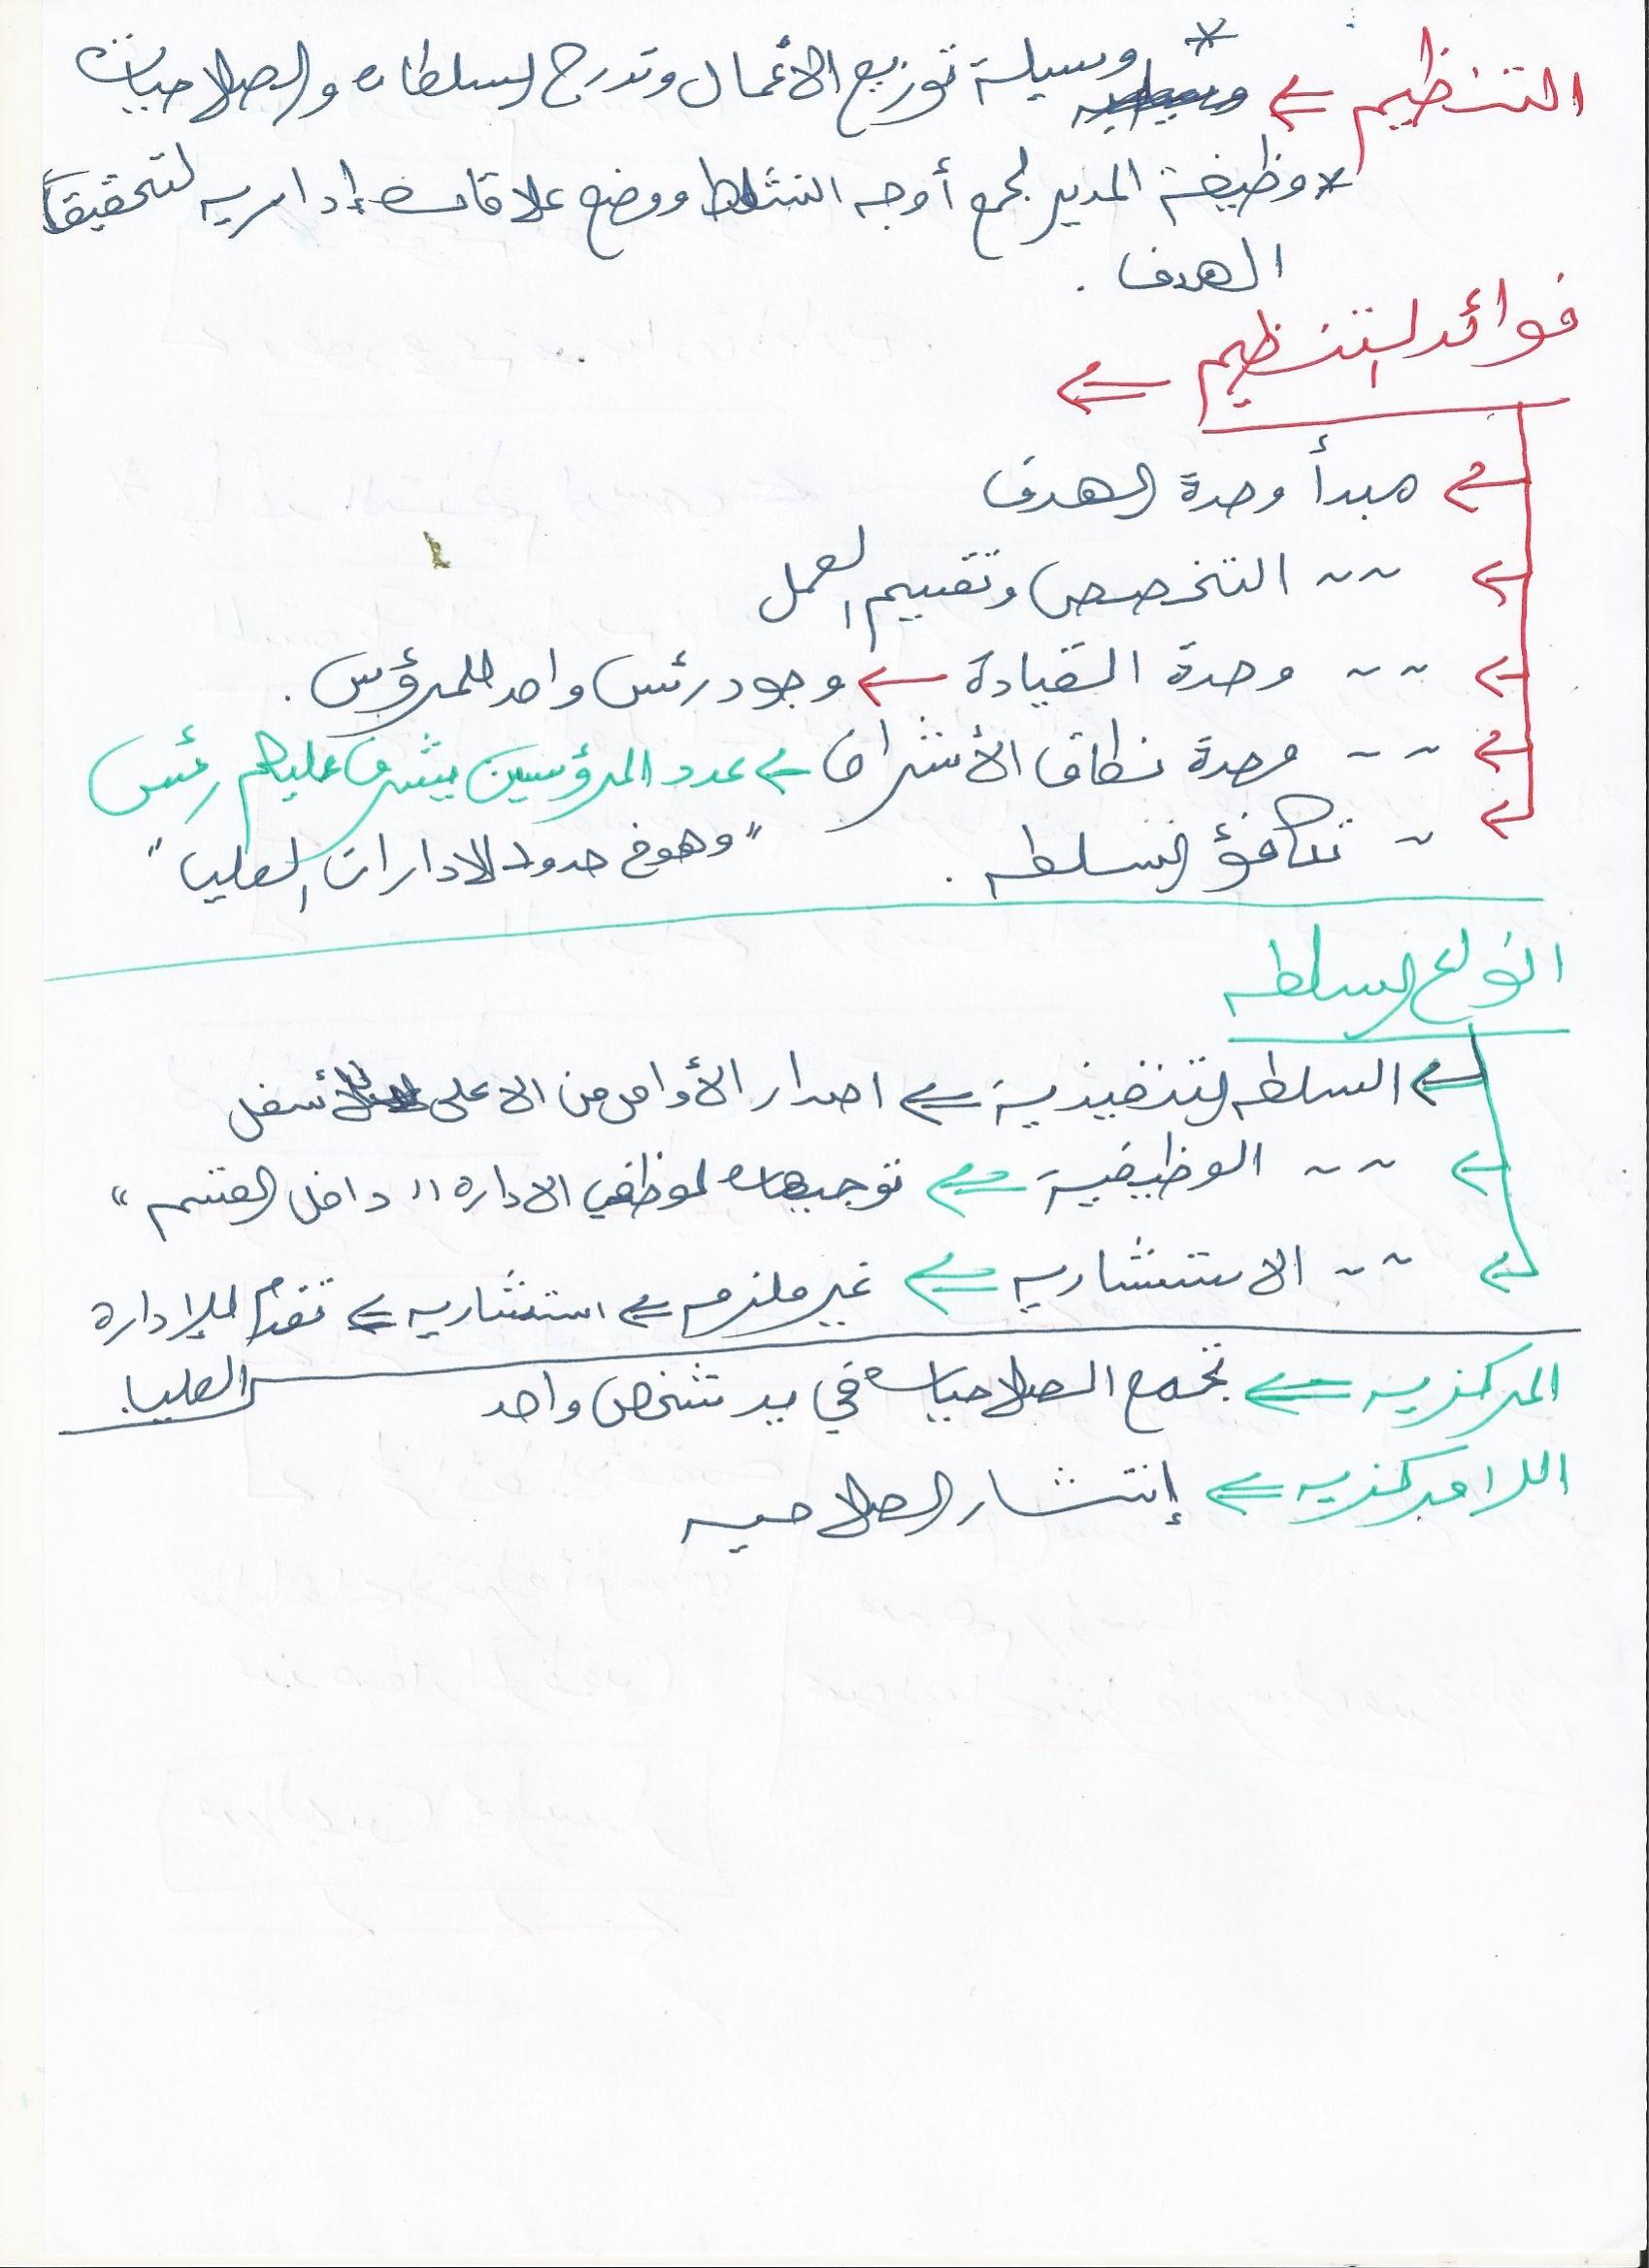 التنظيم ⇐ * وسيلة توزيع الأعمال وتدرج السلطات والصلاحيات
* وظيفة المدير لجمع أوجه النشاط ووضع علاقات إداريه لتحقيقاً
الهدف .
فوائد التنظيم ⇐
← مبدأ وحدة الهدف
← ~ ~ التخصص وتقييم العمل
← ~ ~ وحدة القيادة ← وجود رئس واحد للمرؤس .
← ~ ~ وحدة نطاق الأشراف ← عدد المرؤسين يشرف عليهم رئس
← ~ تكافؤ السلطه . "وهو في حدود الادارات العليا"
انواع السلطه
← السلطه التنفيذية ⇐ اصدار الأوامر من الاعلى للأسفل
← ~ ~ الوظيفية ⇐ توجيهات لموظفي الاداره "داخل القسم"
← ~ ~ الاستشاريه ⇐ غير ملزمه ⇐ استشاريه ⇐ تقدم للإدارة
العليا.
المركزيه ⇐ تجمع الصلاحيات في يد شخص واحد
اللامركزيه ⇐ إنتشار الصلاحيه